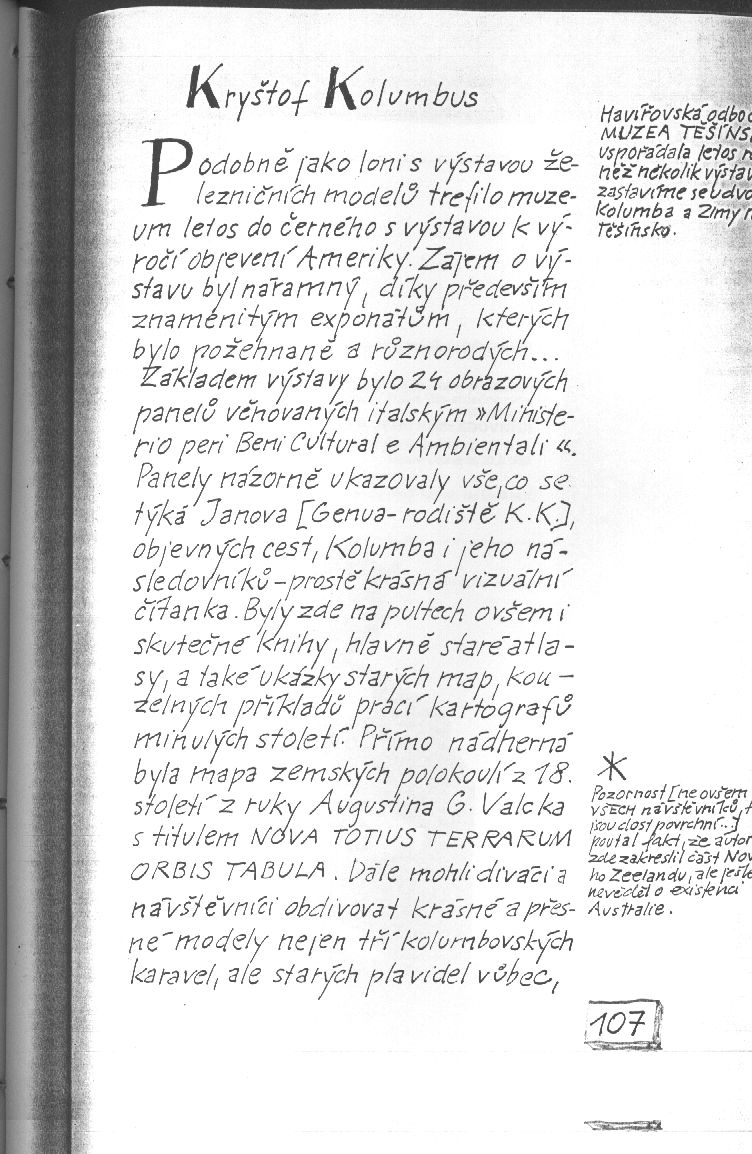 Kryštof Kolumbus
Podobně jako loni s výstavou že-
lezničních modelů trefilo muze-
um letos do černého s výstavou k vý-
ročí objevení Ameriky. Zájem o vý-
stavu byl náramný, díky především
znamenitým exponátům, kterých
bylo požehnaně a různorodých...
Základem výstavy bylo 24 obrazových
panelů věnovaných italským »Ministe-
rio peri Beni Cultural e Ambientali «.
Panely názorně ukazovaly vše, co se
týká Janova [Genua-rodiště K.K.],
objevných cest, Kolumba i jeho ná-
sledovníků – prostě krásná vizuální
čítanka. Byly zde na pultech ovšem i
skutečné knihy, hlavně staré atla-
sy, a také ukázky starých map, kou-
zelných příkladů prací kartografů
minulých století. Přímo nádherná
byla mapa zemských polokoulí z 18.
století z ruky Augustina G. Valcka
s titulem NOVA TOTIUS TERRARUM
ORBIS TABULA. Dále mohli diváci a
návštěvníci obdivovat krásné a přes-
né modely nejen tří kolumbovských
karavel, ale starých plavidel vůbec,
Havířovská odboč
MUZEA TĚŠÍNS
uspořádala letos
než několik výstav
zastavíme se u dvo
Kolumba a Zimy
Těšínsko.
*
Pozornost [ne ovšem
VŠECH návštěvníků,
jsou dost povrchní..]
poutal fakt, že autor
zde zakreslil část Nov
ho Zeelandu, ale ještě
nevěděl o existenci
Australie.
107